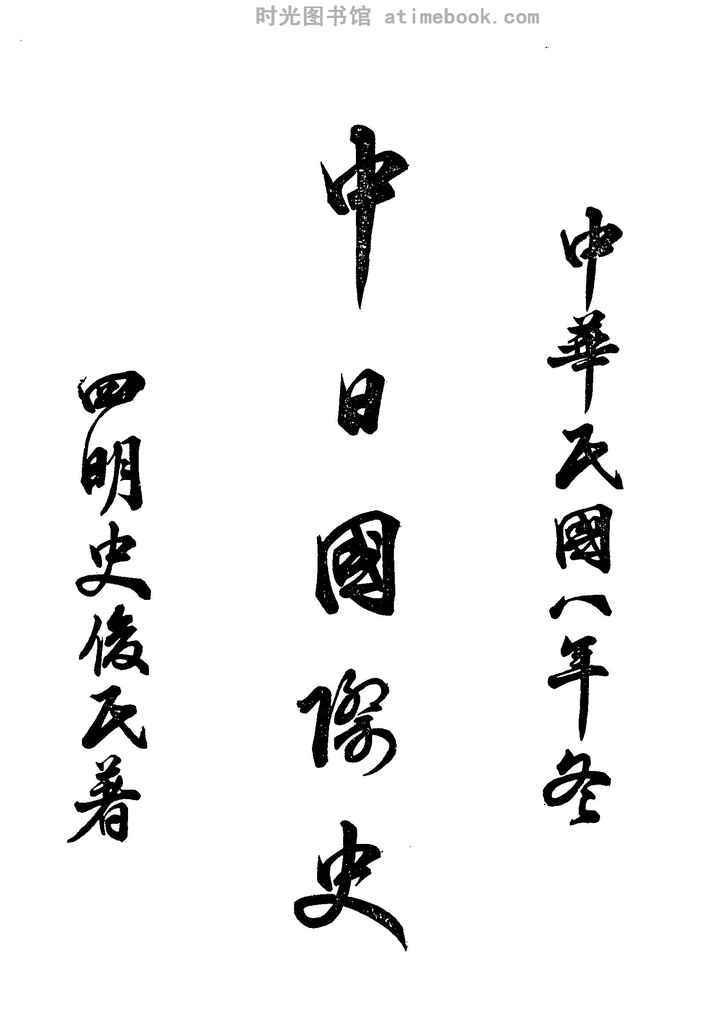 时光图书馆 atimebook.com
中華民國八年冬
中日國際史
四明史俊民著